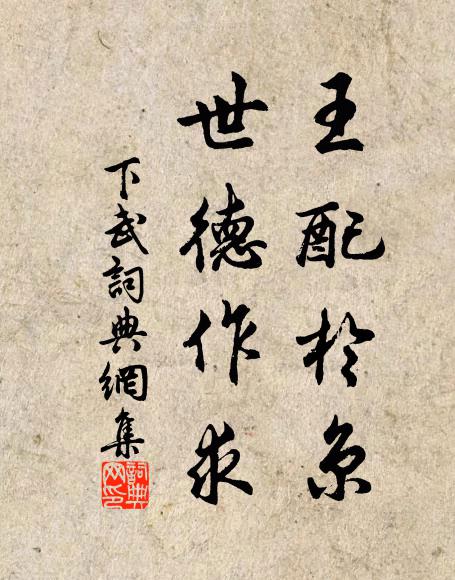 王配於京
世德作求
下武詞典網集
詞典网印